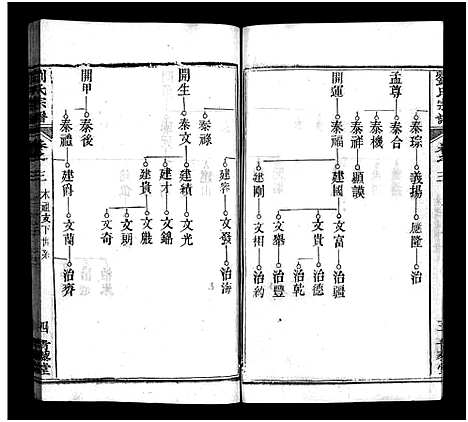 劉氏宗譜
卷之三
三
孟尊
泰琮
義揚
應隆
泰合
泰機
泰祥
顯謨
開運
泰福
建國
文富
治疆
文貴
治德
治乾
文舉
治豐
建剛
文相
治約
開生
泰祿
建寧
文發
治海
泰文
建績
文光
建才
文錦
建貴
文嚴
文朝
文奇
開甲
泰後
泰禮
建爵
文蘭
治齊
劉氏宗譜
卷之三
四
青藜堂